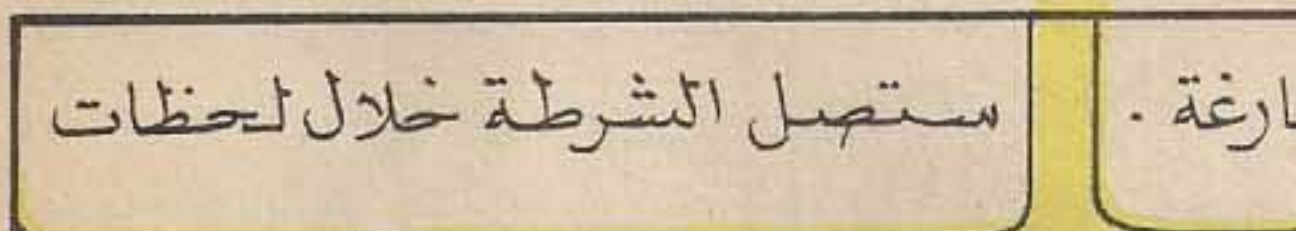 ستصل الشرطة خلال لحظات